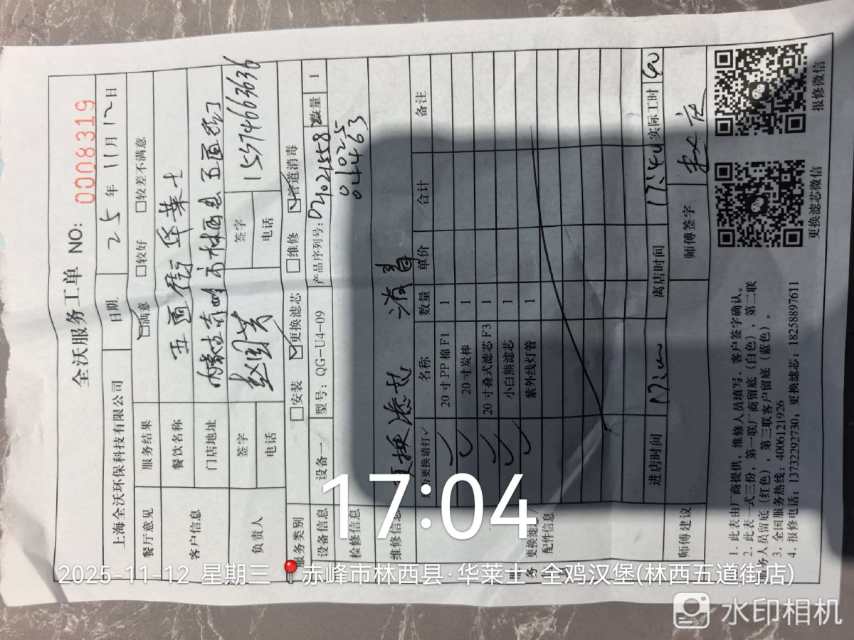 全沃服务工单 NO: 0008319
上海全沃环保科技有限公司 日期 25 年 11 月 12 日
餐厅意见 服务结果 ☑满意 □较好 □较差不满意
客户信息 餐饮名称 五道街华莱士
门店地址 内蒙古赤峰市林西县五道街
负责人 签字 签字
电话 电话 15574663636
服务类别 □安装 ☑更换滤芯 □维修 ☑管道消毒
设备信息 设备一 型号: QG-U4-09 产品序列号: 数量 1
检修信息
维修信息 更换滤芯 消毒
更换请打√ 名称 数量 单价 合计 备注
√ 20 寸 PP 棉 F1 1
√ 20 寸炭棒 1
√ 20 寸叠式滤芯 F3 1
√ 小白熊滤芯 1
紫外线灯管 1
更换滤芯
配件信息
进店时间 17:00 离店时间 17:40 实际工时 40
师傅建议 师傅签字
1. 此表由厂商提供,维修人员填写,客户签字确认。
2. 此表一式三份,第一联厂商留底(白色),第二联
务人员留底(红色),第三联客户留底(蓝色)。
3. 全国服务热线: 4006121926
4. 报修电话: 13732292730, 更换滤芯: 18258897611
更换滤芯微信
报修微信
17:04
2025-11-12 星期三 赤峰市林西县·华莱士·全鸡汉堡(林西五道街店)
水印相机